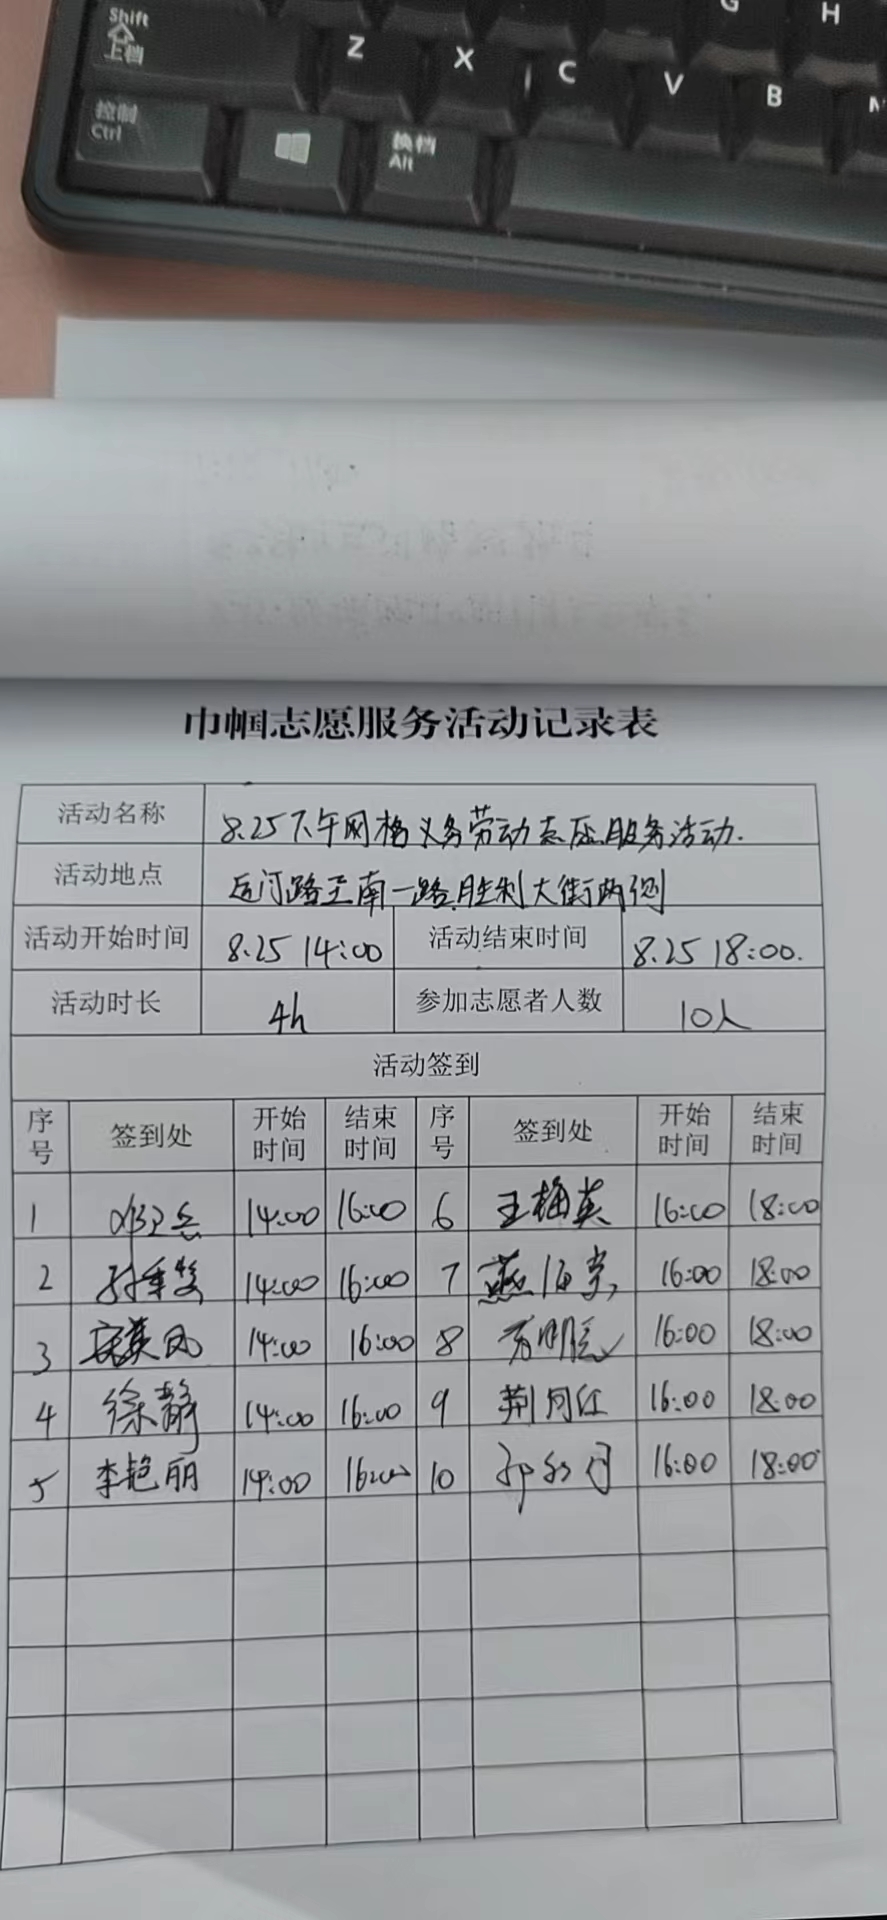 G H
Shift
上档
Z X C V B
控制
Ctrl
换档
Alt
巾帼志愿服务活动记录表
活动名称 8.25下午网格义务劳动志愿服务活动.
活动地点 后河路至南一路,胜利大街两侧
活动开始时间 8.25 14:00 活动结束时间 8.25 18:00.
活动时长 4h 参加志愿者人数 10人
活动签到
序号 签到处 开始时间 结束时间 序号 签到处 开始时间 结束时间
1 14:00 16:00 6 王梅英 16:00 18:00
2 14:00 16:00 7 16:00 18:00
3 14:00 16:00 8 16:00 18:00
4 徐静 14:00 16:00 9 荆月红 16:00 18:00
5 李艳丽 14:00 16:00 10 16:00 18:00